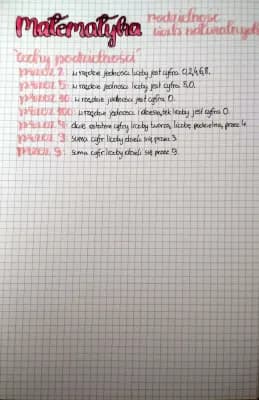 Matematyka
podzielność
liczb naturalnych
"cechy podzielności"
przez 2: w rzędzie jedności liczby jest cyfra 0,2,4,6,8.
przez 5: w rzędzie jedności liczby jest cyfra 5,0.
przez 10: w rzędzie jedności jest cyfra 0.
przez 100: w rzędzie jedności i dziesiątek liczby jest cyfra 0.
przez 4: dwie ostatnie cyfry liczby tworzą liczbę podzielną przez 4.
przez 3: suma cyfr liczby dzieli się przez 3.
przez 9: suma cyfr liczby dzieli się przez 9.